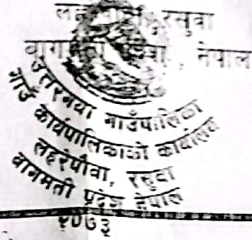 रसुवा
नेपाल
उत्तरगया गाउँपालिका
गाउँ कार्यपालिकाको कार्यालय
लहरेपौवा, रसुवा
बागमती प्रदेश नेपाल
२०७३